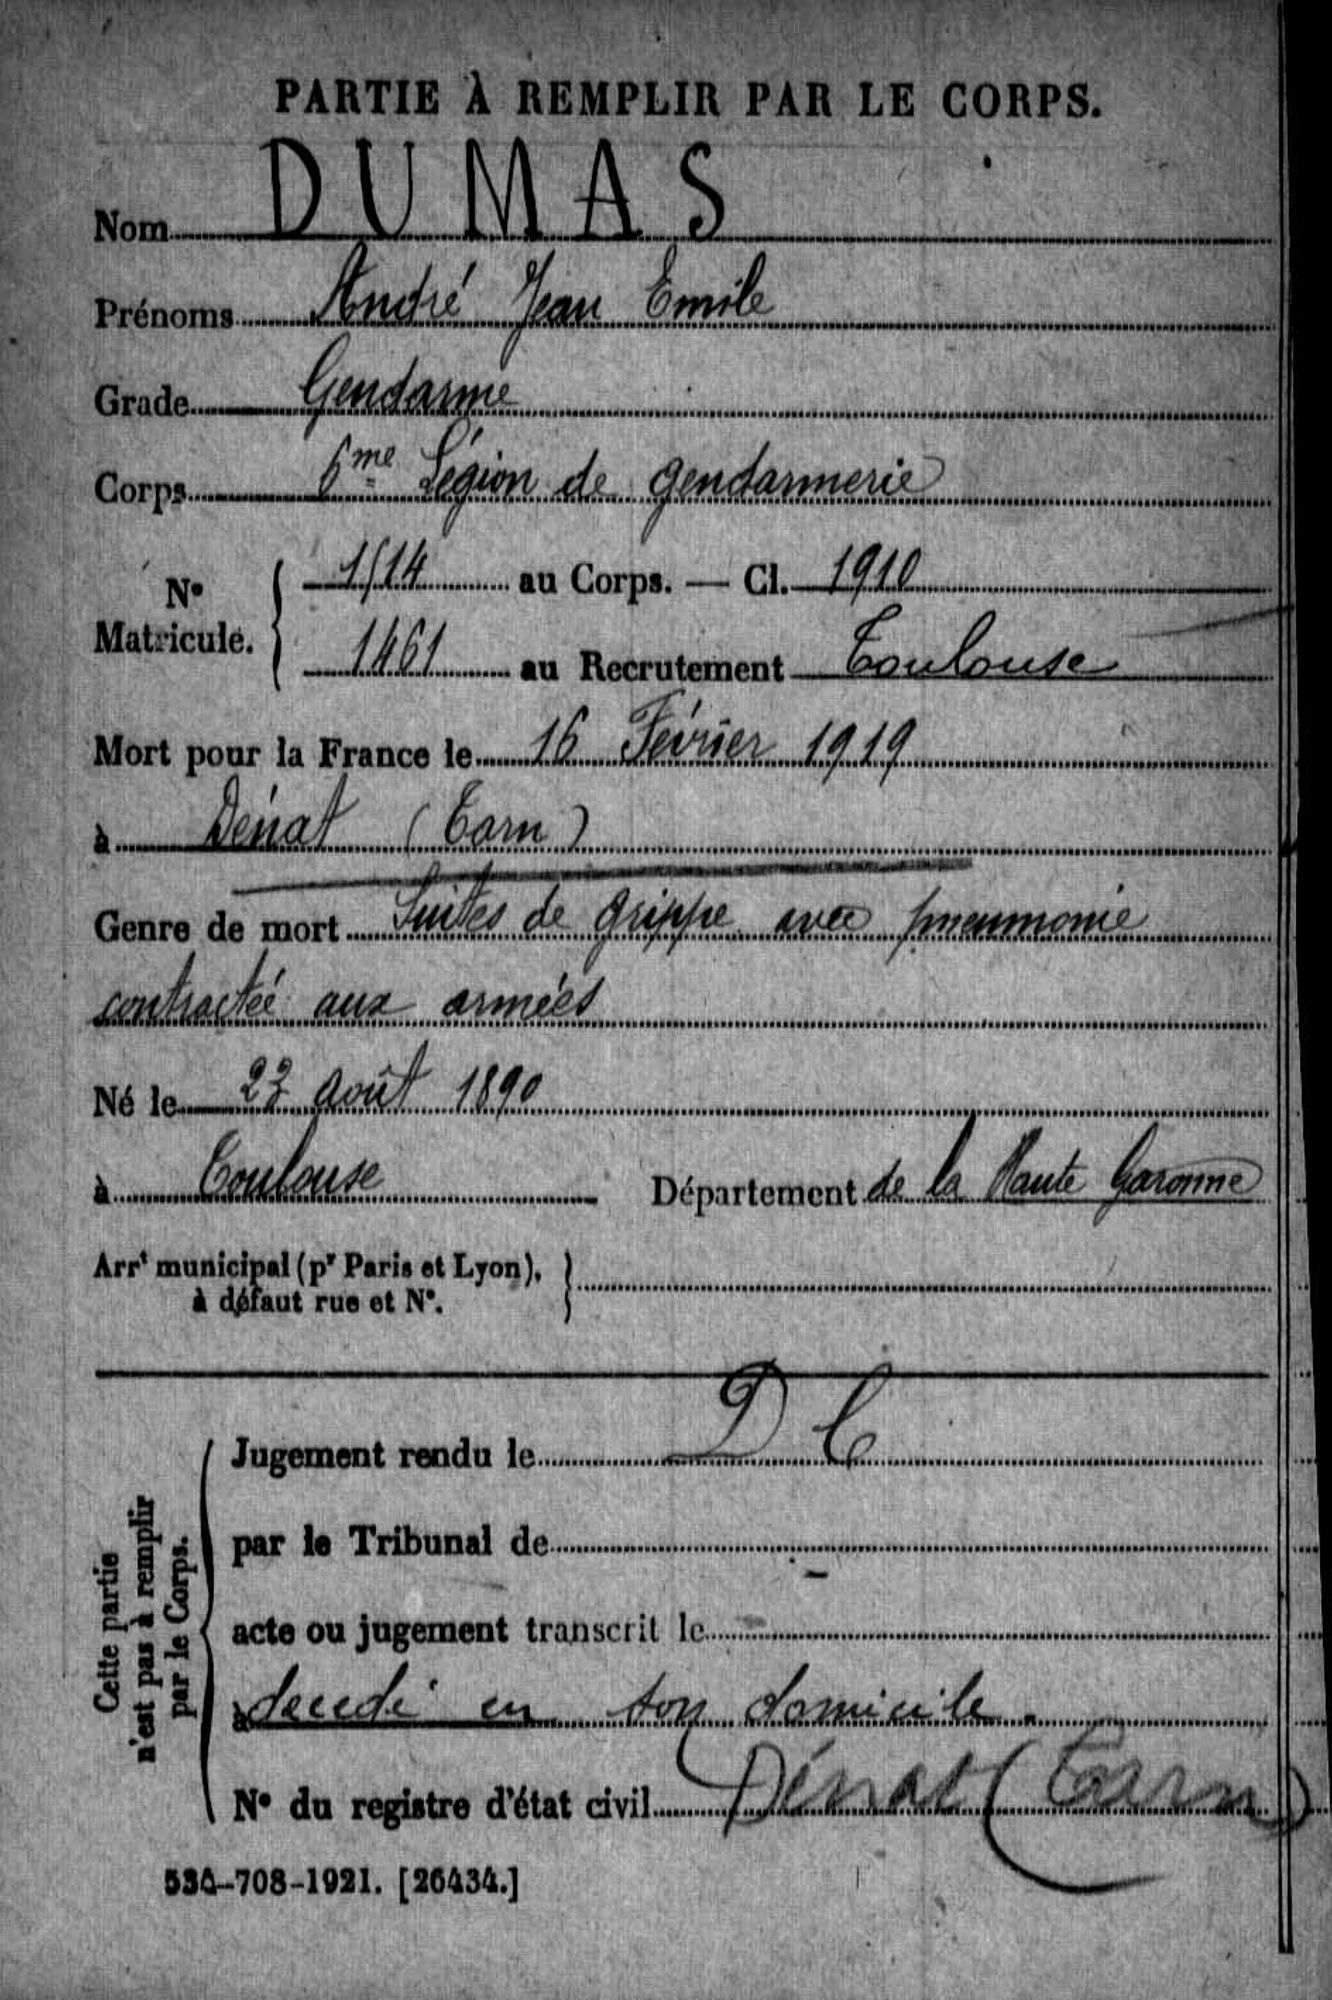 PARTIE À REMPLIR PAR LE CORPS.
Nom DUMAS
Prénoms André Jean Emile
Grade Gendarme
Corps 6me Légion de gendarmerie
N° Matricule. 1514 au Corps. — Cl. 1910
1461 au Recrutement Toulouse
Mort pour la France le 16 Février 1919
à Dénat (Tarn)
Genre de mort Suites de grippe avec pneumonie
contractée aux armées
Né le 23 août 1890
à Toulouse Département de la Haute Garonne
Arrt municipal (pr Paris et Lyon),
à défaut rue et N°.
Cette partie
n'est pas à remplir
par le Corps.
D C
Jugement rendu le
par le Tribunal de
acte ou jugement transcrit le
à décédé en son domicile.
N° du registre d'état civil Dénat (Tarn)
534-708-1921. [26434.]